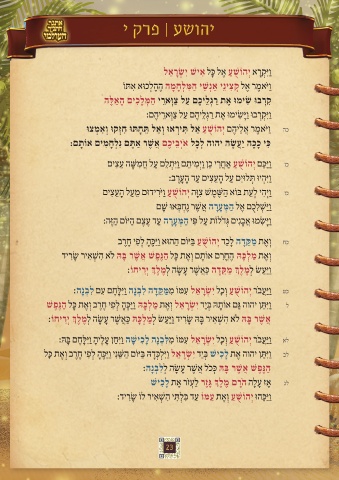 יהושע | פרק י
וַיִּקְרָא יְהוֹשֻׁעַ אֶל כָּל אִישׁ יִשְׂרָאֵל
וַיֹּאמֶר אֶל קְצִינֵי אַנְשֵׁי הַמִּלְחָמָה הֶהָלְכוּא אִתּוֹ
קִרְבוּ שִׂימוּ אֶת רַגְלֵיכֶם עַל צַוְּארֵי הַמְּלָכִים הָאֵלֶּה
וַיִּקְרְבוּ וַיָּשִׂימוּ אֶת רַגְלֵיהֶם עַל צַוְּארֵיהֶם:
כה וַיֹּאמֶר אֲלֵיהֶם יְהוֹשֻׁעַ אַל תִּירְאוּ וְאַל תֵּחָתּוּ חִזְקוּ וְאִמְצוּ
כִּי כָכָה יַעֲשֶׂה יהוה לְכָל אֹיְבֵיכֶם אֲשֶׁר אַתֶּם נִלְחָמִים אוֹתָם:
כו וַיַּכֵּם יְהוֹשֻׁעַ אַחֲרֵי כֵן וַיְמִיתֵם וַיִּתְלֵם עַל חֲמִשָּׁה עֵצִים
וַיִּהְיוּ תְּלוּיִם עַל הָעֵצִים עַד הָעָרֶב:
כז וַיְהִי לְעֵת בּוֹא הַשֶּׁמֶשׁ צִוָּה יְהוֹשֻׁעַ וַיֹּרִידוּם מֵעַל הָעֵצִים
וַיַּשְׁלִכֻם אֶל הַמְּעָרָה אֲשֶׁר נֶחְבְּאוּ שָׁם
וַיָּשִׂמוּ אֲבָנִים גְּדֹלוֹת עַל פִּי הַמְּעָרָה עַד עֶצֶם הַיּוֹם הַזֶּה:
כח וְאֶת מַקֵּדָה לָכַד יְהוֹשֻׁעַ בַּיּוֹם הַהוּא וַיַּכֶּהָ לְפִי חֶרֶב
וְאֶת מַלְכָּהּ הֶחֱרִם אוֹתָם וְאֶת כָּל הַנֶּפֶשׁ אֲשֶׁר בָּהּ לֹא הִשְׁאִיר שָׂרִיד
וַיַּעַשׂ לְמֶלֶךְ מַקֵּדָה כַּאֲשֶׁר עָשָׂה לְמֶלֶךְ יְרִיחוֹ:
כט וַיַּעֲבֹר יְהוֹשֻׁעַ וְכָל יִשְׂרָאֵל עִמּוֹ מִמַּקֵּדָה לִבְנָה וַיִּלָּחֶם עִם לִבְנָה:
ל וַיִּתֵּן יהוה גַּם אוֹתָהּ בְּיַד יִשְׂרָאֵל וְאֶת מַלְכָּהּ וַיַּכֶּהָ לְפִי חֶרֶב וְאֶת כָּל הַנֶּפֶשׁ
אֲשֶׁר בָּהּ לֹא הִשְׁאִיר בָּהּ שָׂרִיד וַיַּעַשׂ לְמַלְכָּהּ כַּאֲשֶׁר עָשָׂה לְמֶלֶךְ יְרִיחוֹ:
לא וַיַּעֲבֹר יְהוֹשֻׁעַ וְכָל יִשְׂרָאֵל עִמּוֹ מִלִּבְנָה לָכִישָׁה וַיִּחַן עָלֶיהָ וַיִּלָּחֶם בָּהּ:
לב וַיִּתֵּן יהוה אֶת לָכִישׁ בְּיַד יִשְׂרָאֵל וַיִּלְכְּדָהּ בַּיּוֹם הַשֵּׁנִי וַיַּכֶּהָ לְפִי חֶרֶב וְאֶת כָּל
הַנֶּפֶשׁ אֲשֶׁר בָּהּ כְּכֹל אֲשֶׁר עָשָׂה לְלִבְנָה:
לג אָז עָלָה הֹרָם מֶלֶךְ גֶּזֶר לַעְזֹר אֶת לָכִישׁ
וַיַּכֵּהוּ יְהוֹשֻׁעַ וְאֶת עַמּוֹ עַד בִּלְתִּי הִשְׁאִיר לוֹ שָׂרִיד:
23